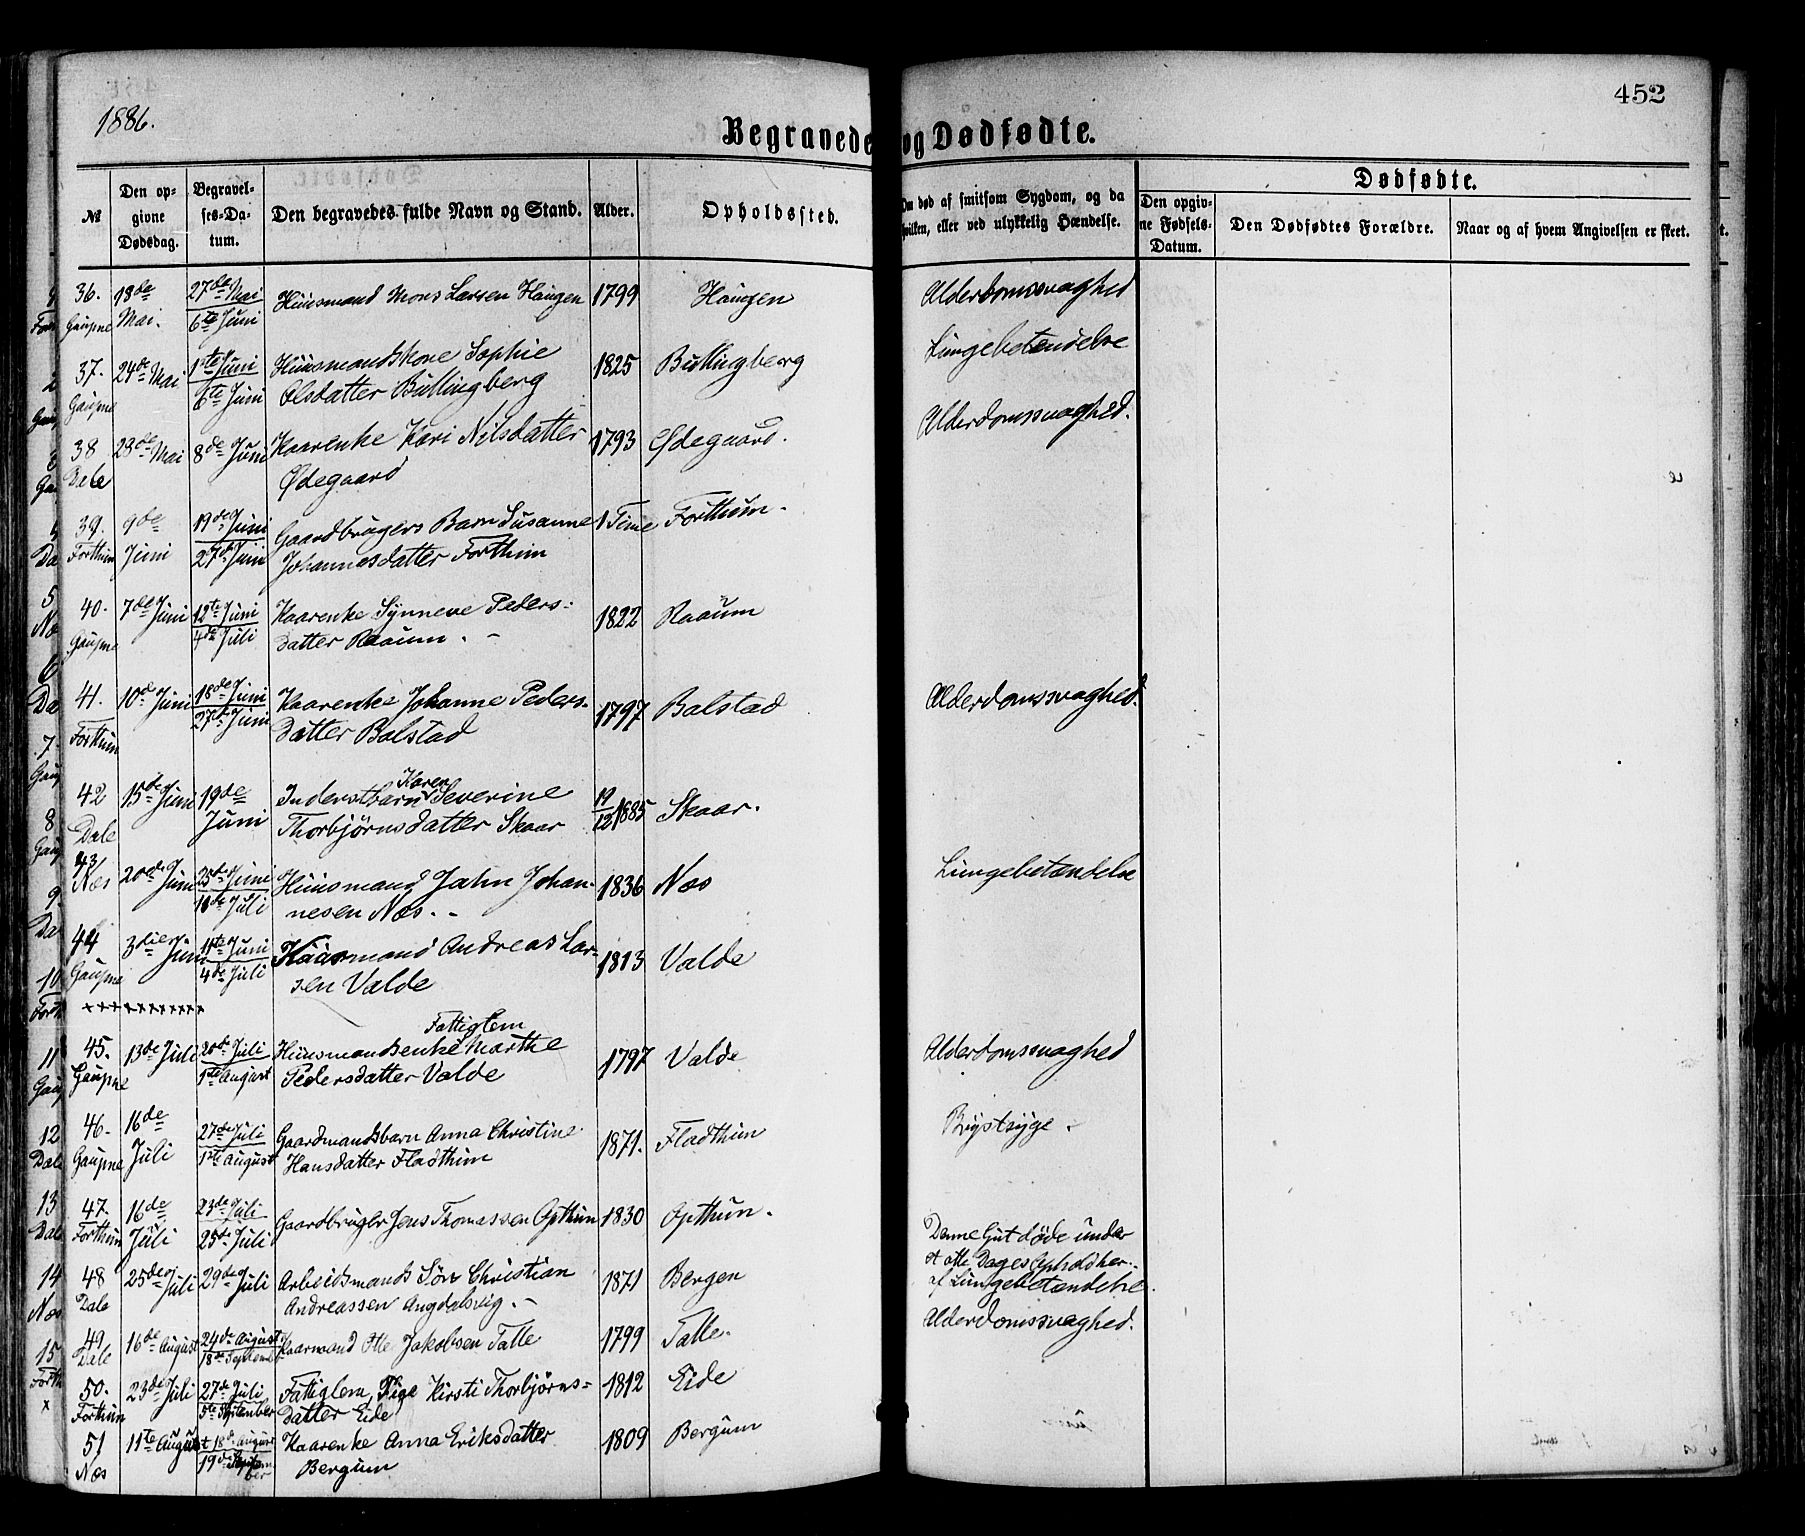 1886.
452
Begravede og Dødfødte.
Dødfødte.
№
Den opgivne Dødsdag.
Begravelses-Datum.
Den begravedes fulde Navn og Stand.
Alder.
Opholdssted.
Om død af smitsom Sygdom, og da hvilken, eller ved ulykkelig Hændelse.
Den opgivne Fødsels-Datum.
Den Dødfødtes Forældre.
Naar og af hvem Angivelsen er skeet.
36. 18de 27de Mai Huusmand Mons Larsen Haugen 1799 Haugen Alderdomssvaghed
Gaupne Mai. 6te Juni
37. 24de Mai 1ste Juni Huusmandskone Sophie 1825 Bullingberg Lungebetændelse
Gaupne 6te Juni Olsdatter Bullingberg
38 28de Mai 8de Juni Kaarenke Kari Nilsdatter 1793 Ødegaard. Alderdomssvaghed.
Dale Ødegaard
39. 9de 19de Juni Gaardbrugers Barn Susanne 1 Time Forthun.
Forthun Juni 27de Juni Johannesdatter Forthun
40. 7de Juni 12te Juni Kaarenke Synneve Peders- 1822 Raaum
Gaupne 4de Juli datter Raaum.
41. 10de Juni 18de Juni Kaarenke Johanne Peders- 1797 Bolstad Alderdomssvaghed.
Forthun 27de Juni datter Bolstad
42 15de Juni 19de Inderstbarn Karen Severine 19/12 1885 Skaar.
Dale Juni Thorbjørnsdatter Skaar
43 20de Juni 25de Juni Huusmand John Johan- 1836 Næs Lungebetændelse
Næs 18de Juli nesen Næs.
44 3die Juni 11te Juni Kaarmand Andreas Lar- 1813 Valde
Gaupne 4de Juli sen Valde
× × × × × × × × × × × ×
Fattiglem
45. 13de Juli 20de Juli Huusmandsenke Marthe 1797 Valde Alderdomssvaghed
Gaupne 1ste August Pedersdatter Valde
46. 16de 27de Juli Gaardmandsbarn Anna Christine 1871. Fladthun Brystsyge.
Gaupne Juli 1ste August Hansdatter Fladthun
47. 16de 23de Juli Gaardbruger Jens Thomassen Opthun 1830 Opthun.
Forthun Juli 25de Juli
48 25de Juli 29de Juli Arbeidsmands Søn Christian 1871 Bergen Denne Gut døde under
Dale Andreassen Angdalsvig. et otte Dages Ophold her..
af Lungebetændelse.
49 16de August 24de August Kaarmand Ole Jakobsen Talle 1799 Talle. Alderdomssvaghed.
Dale 18de September
50. 23de Juli 27de Juli Fattiglem, Pige Kirsti Thorbjørns- 1812 Eide
Forthun 5te September datter Eide
51 11te August 18de August Kaarenke Anna Eriksdatter 1809 Bergum
Næs 19de September Bergum